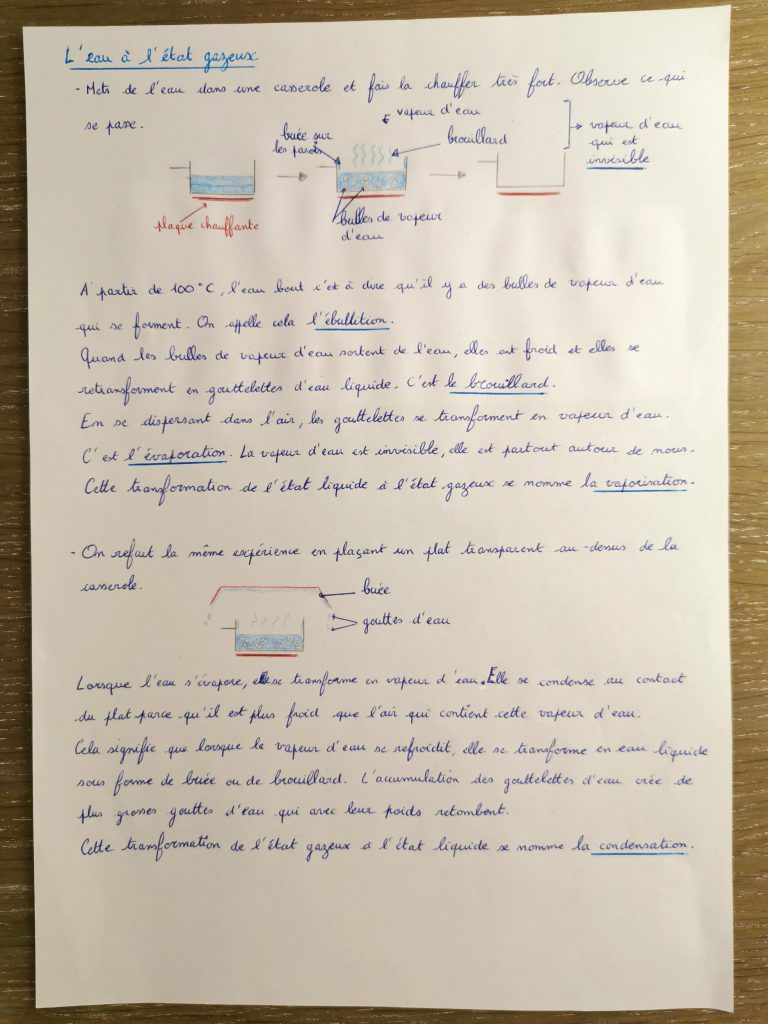 L'eau à l'état gazeux
- Mets de l'eau dans une casserole et fais la chauffer très fort. Observe ce qui
se passe.
vapeur d'eau
buée sur
les parois
brouillard
vapeur d'eau
qui est
invisible
plaque chauffante
bulles de vapeur
d'eau
A partir de 100°C, l'eau bout c'est à dire qu'il y a des bulles de vapeur d'eau
qui se forment. On appelle cela l'ébullition.
Quand les bulles de vapeur d'eau sortent de l'eau, elles ont froid et elles se
retransforment en gouttelettes d'eau liquide. C'est le brouillard.
En se dispersant dans l'air, les gouttelettes se transforment en vapeur d'eau.
C'est l'évaporation. La vapeur d'eau est invisible, elle est partout autour de nous.
Cette transformation de l'état liquide à l'état gazeux se nomme la vaporisation.
- On refait la même expérience en plaçant un plat transparent au-dessus de la
casserole.
buée
gouttes d'eau
Lorsque l'eau s'évapore, elle se transforme en vapeur d'eau. Elle se condense au contact
du plat parce qu'il est plus froid que l'air qui contient cette vapeur d'eau.
Cela signifie que lorsque la vapeur d'eau se refroidit, elle se transforme en eau liquide
sous forme de buée ou de brouillard. L'accumulation des gouttelettes d'eau crée de
plus grosses gouttes d'eau qui avec leur poids retombent.
Cette transformation de l'état gazeux à l'état liquide se nomme la condensation.